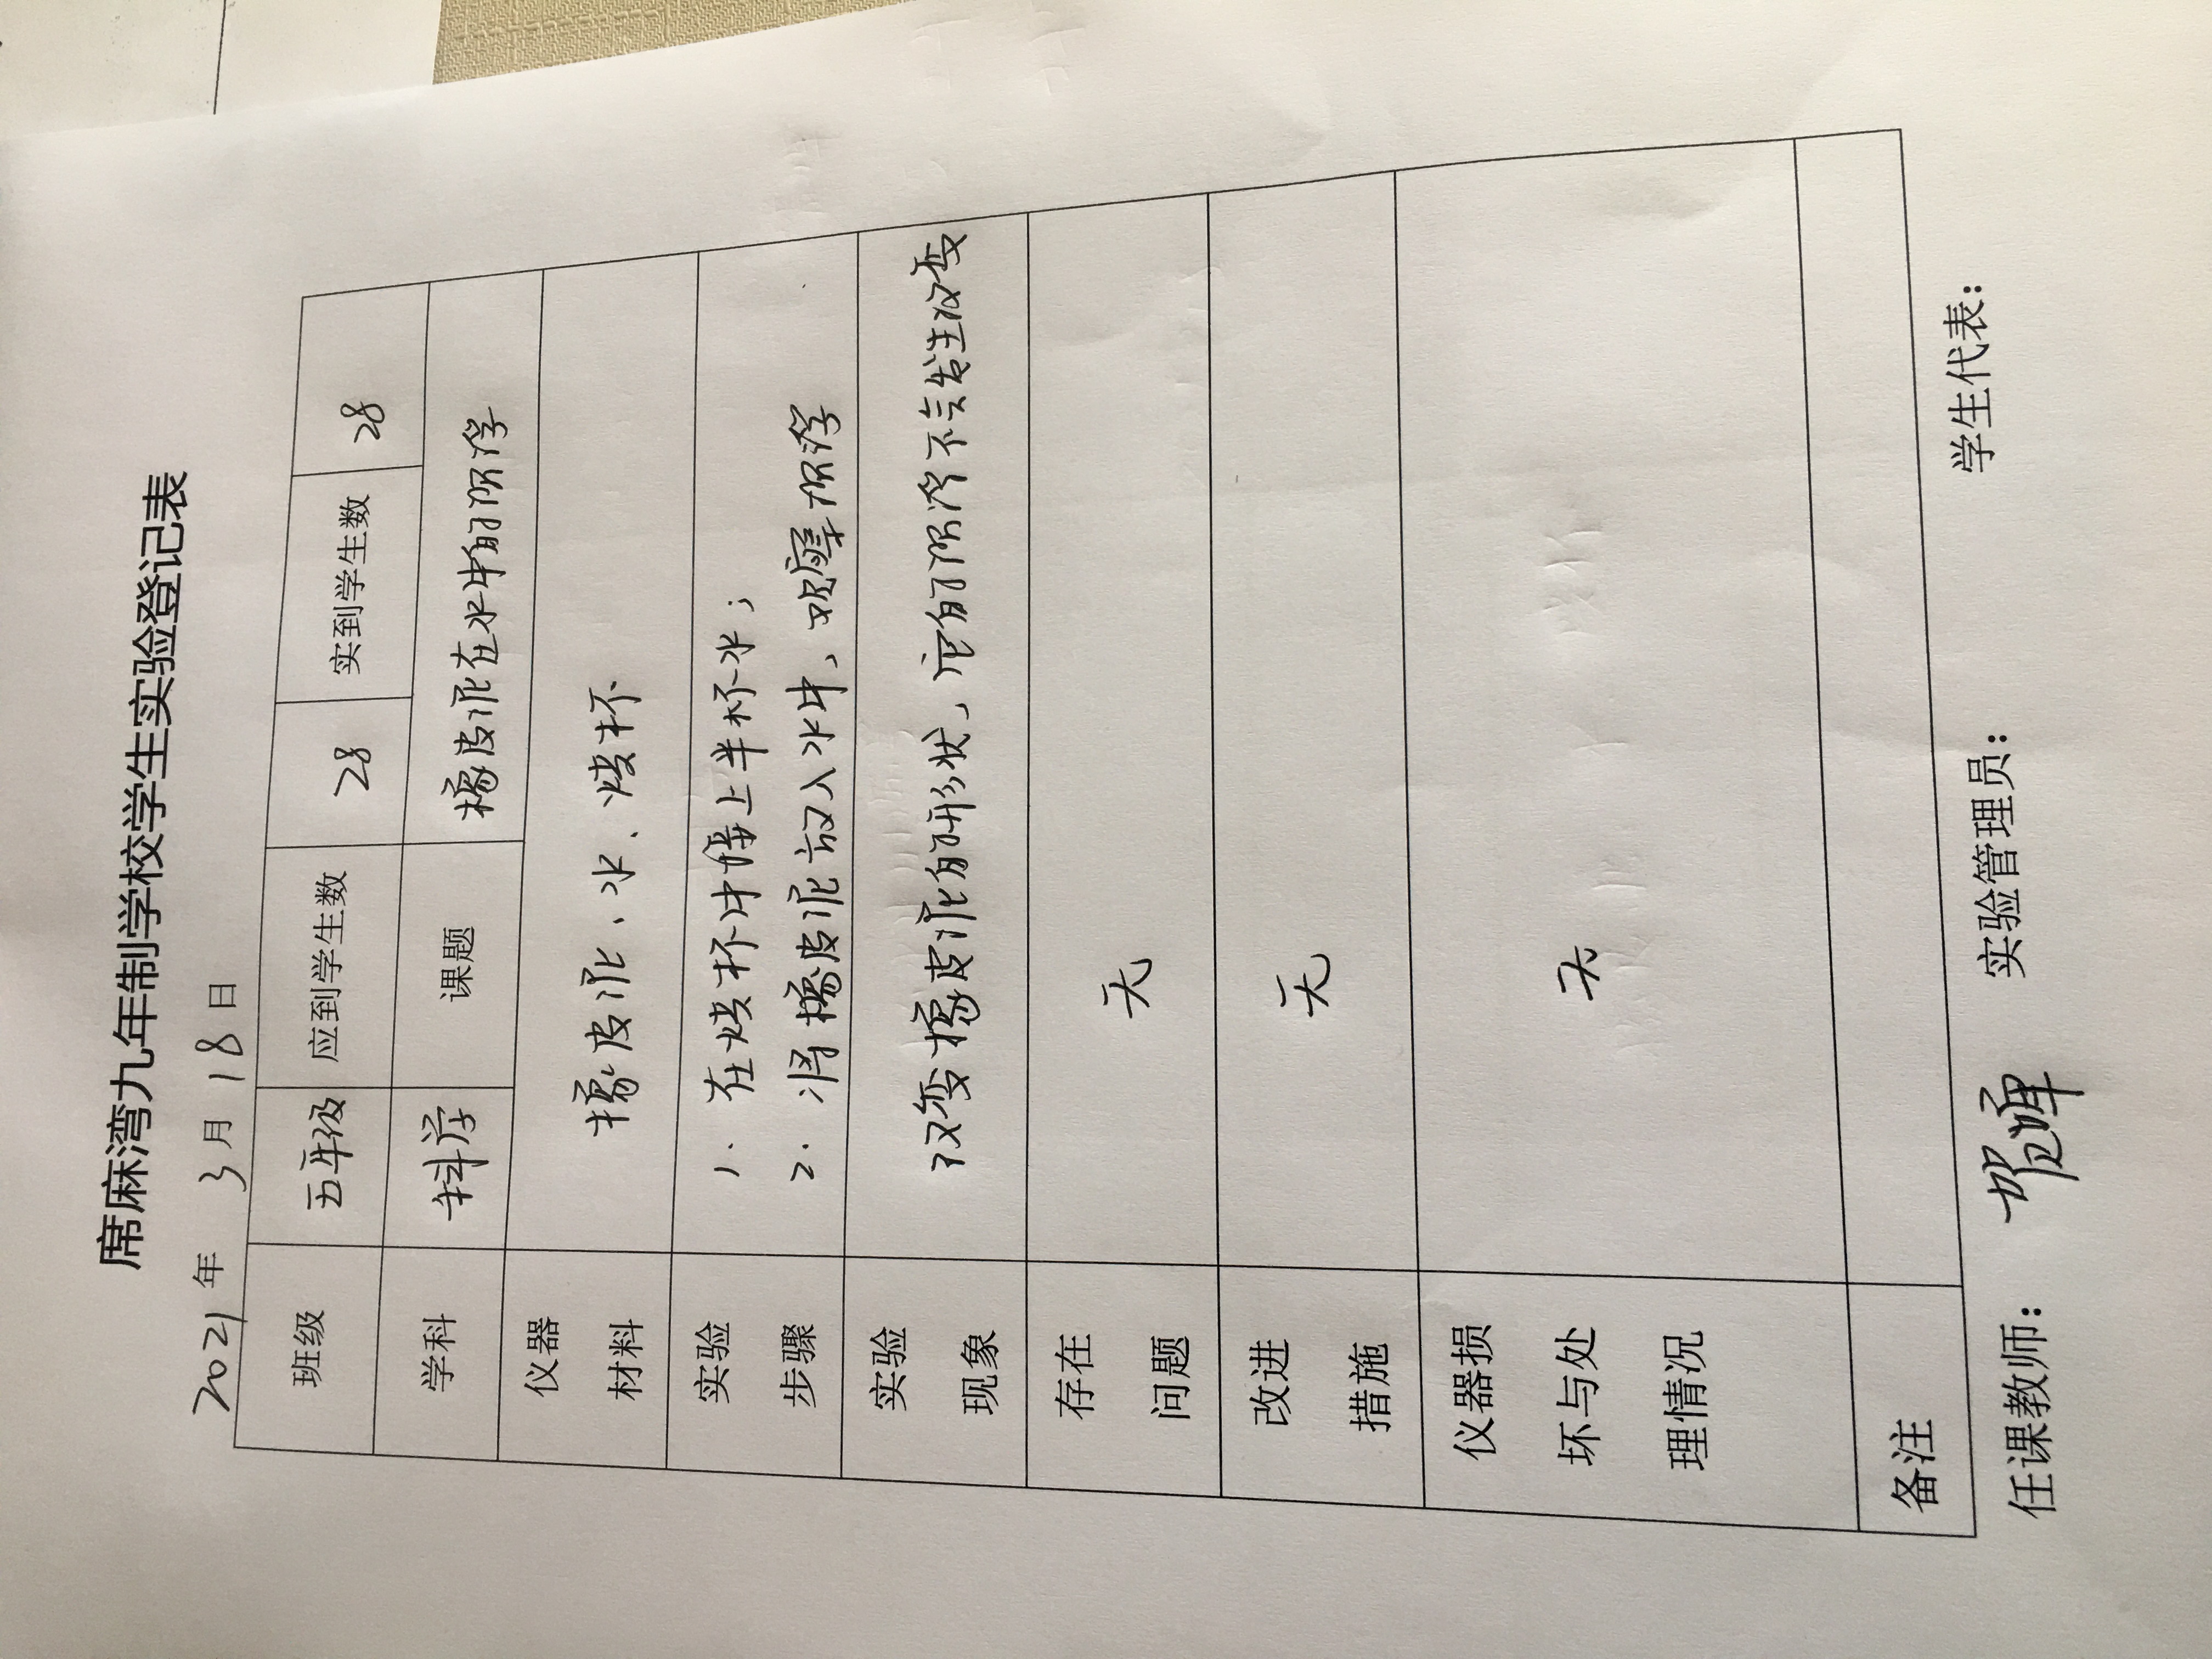 席麻湾九年制学校学生实验登记表
2021年 3月18日
班级 五年级 应到学生数 28 实到学生数 28
学科 科学 课题 橡皮泥在水中的沉浮
仪器
材料
橡皮泥、水、烧杯
实验
步骤
1. 在烧杯中接上半杯水；
2. 将橡皮泥放入水中，观察沉浮
实验
现象
改变橡皮泥的形状，它的沉浮不会发生改变
存在
问题
无
改进
措施
无
仪器损
坏与处
理情况
无
备注
任课教师： 实验管理员： 学生代表：